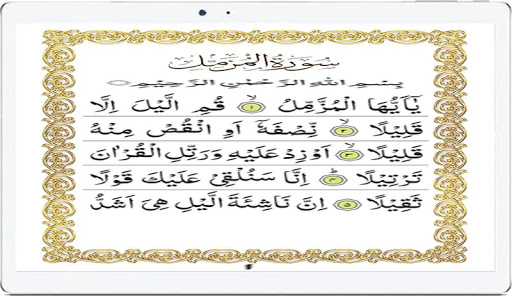 سورة المزمل
بسم الله الرحمن الرحيم
يٰۤاَيُّهَا الْمُزَّمِّلُ ۝١ قُمِ الَّيْلَ اِلَّا
قَلِيْلًا ۝٢ نِّصْفَهٗۤ اَوِ انْقُصْ مِنْهُ
قَلِيْلًا ۝٣ اَوْ زِدْ عَلَيْهِ وَ رَتِّلِ الْقُرْاٰنَ
تَرْتِيْلًا ۝٤ اِنَّا سَنُلْقِيْ عَلَيْكَ قَوْلًا
ثَقِيْلًا ۝٥ اِنَّ نَاشِئَةَ الَّيْلِ هِيَ اَشَدُّ